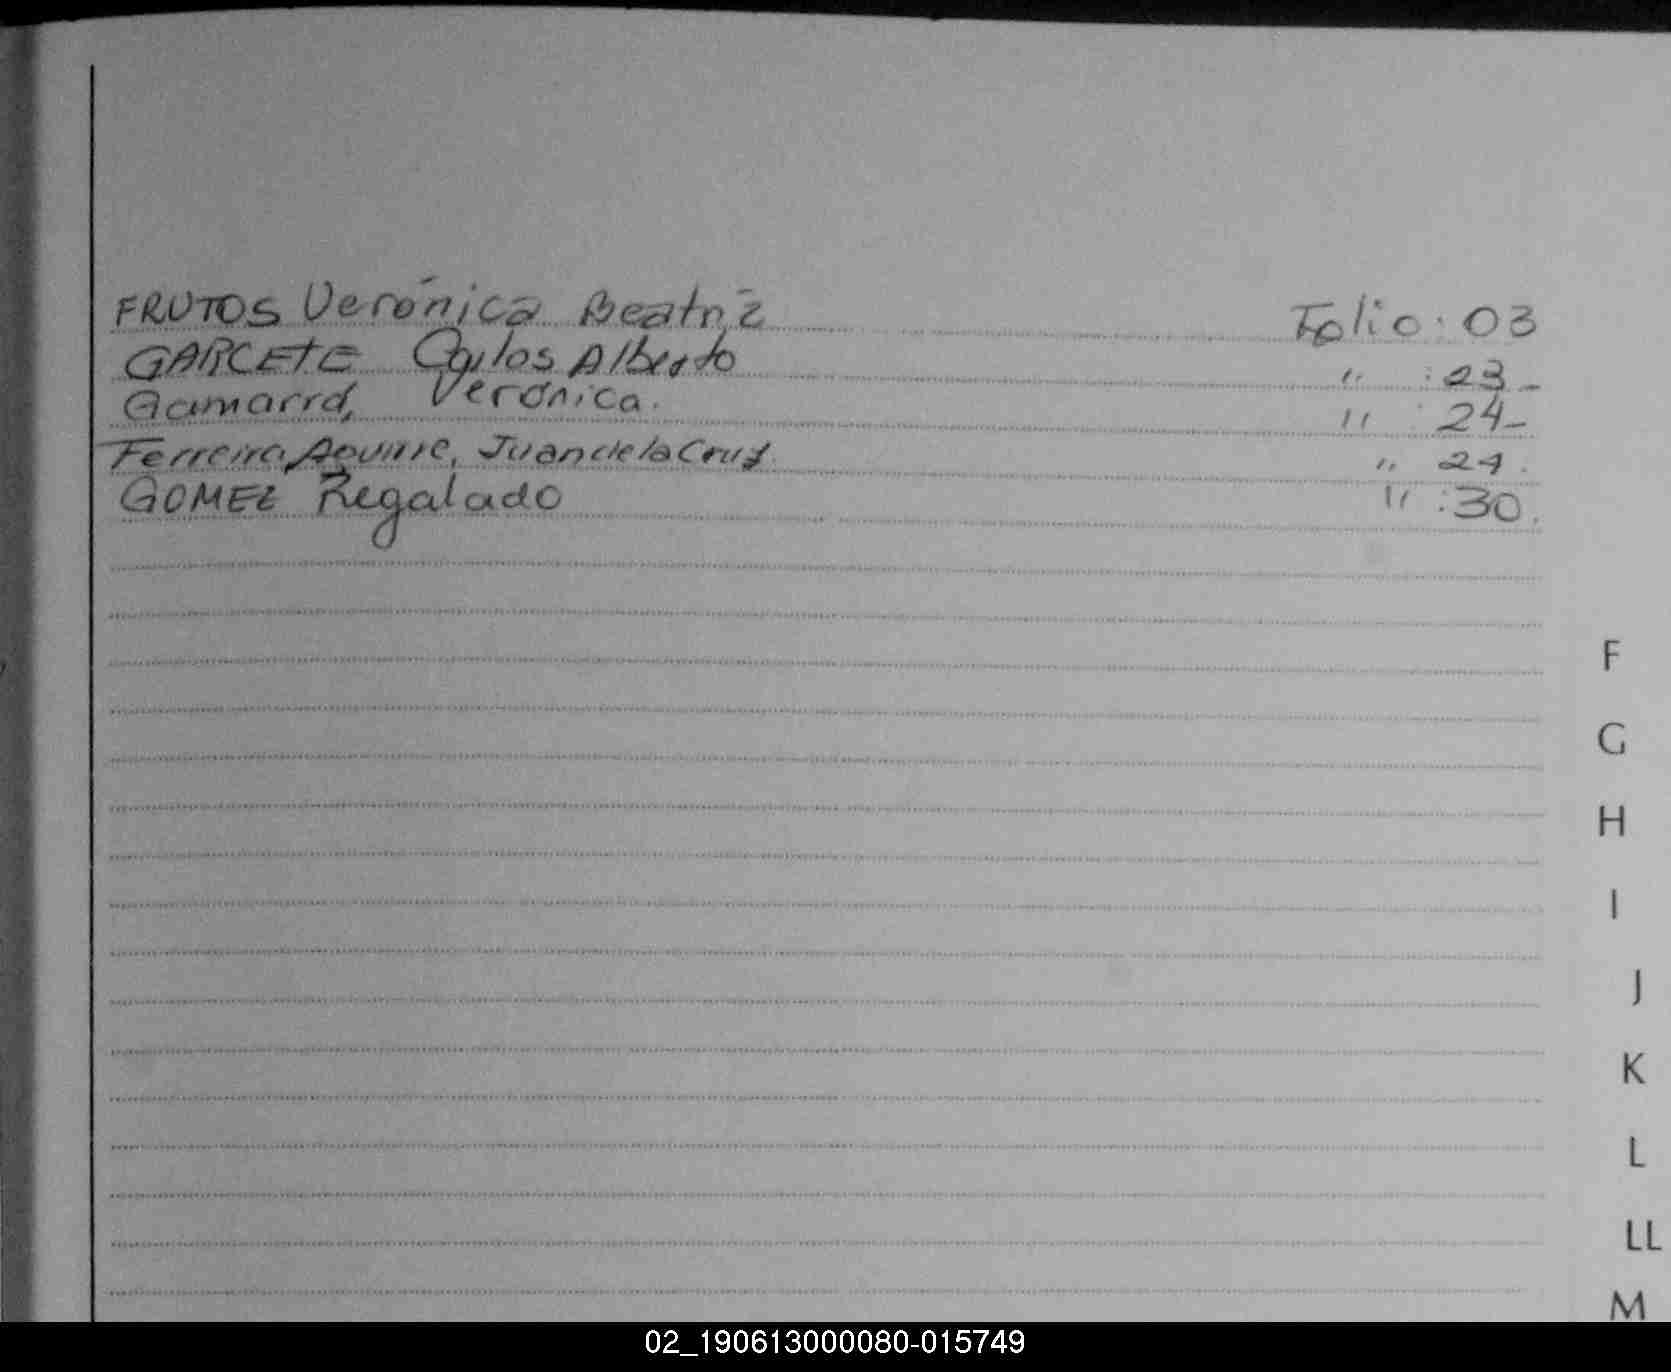 FRUTOS Verónica Beatriz Folio: 03
GARCETE Carlos Alberto " :23-
Gamarra, Verónica. " : 24-
Ferreira Aquirre, Juan de la Cruz " 29.
GOMEZ Regalado " :30.
F
G
H
I
J
K
L
LL
M
02_190613000080-015749